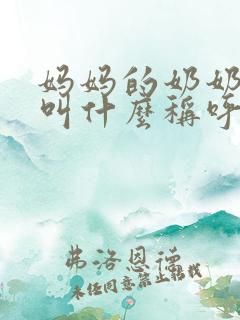 妈妈的奶奶
叫什麼稱呼
弗洛恩德
未经同意禁止转载